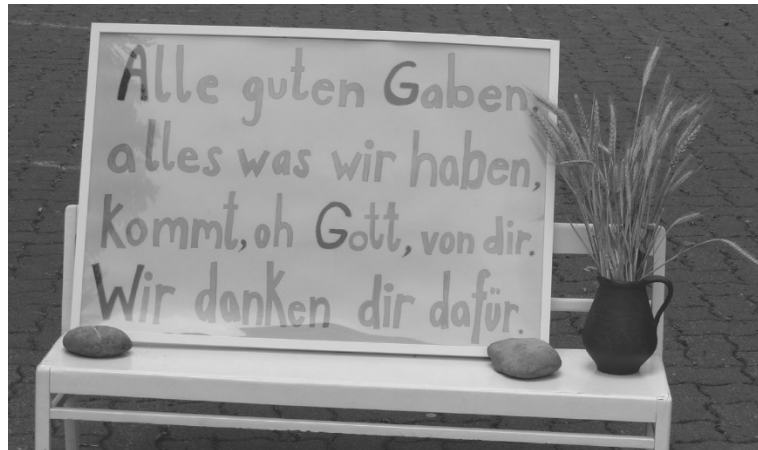 Alle guten Gaben,
alles was wir haben,
kommt, oh Gott, von dir.
Wir danken dir dafür.